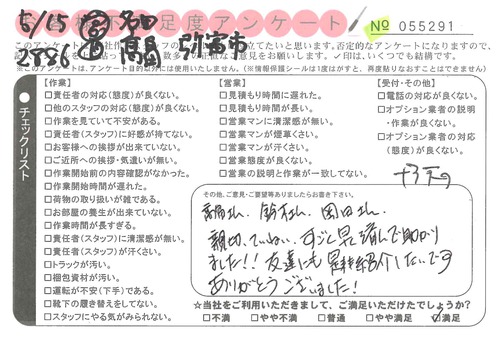 5/15 名 弥富市
2886 高
お客様 満足度アンケート
№ 055291
※このアンケートは、アンケート目的以外には使用いたしません。(※情報保護シールは1度はがすと、再度貼りなおすことはできません)
チェックリスト
【作業】
□責任者の対応(態度)が良くない。
□他のスタッフの対応(態度)が良くない。
□作業を見ていて不安がある。
□責任者(スタッフ)に好感が持てない。
□お客様への挨拶が出来ていない。
□ご近所への挨拶・気遣いが無い。
□作業開始前の内容確認がなかった。
□作業開始時間が遅れた。
□荷物の取り扱いが雑である。
□お部屋の養生が出来ていない。
□作業時間が長すぎる。
□責任者(スタッフ)に清潔感が無い。
□責任者(スタッフ)が汗くさい。
□トラックが汚い。
□梱包資材が汚い。
□運転が不安(下手)である。
□靴下の履き替えをしてない。
□スタッフにやる気がみられない。
【営業】
□見積もり時間に遅れた。
□見積もり時間が長い。
□営業マンに清潔感が無い。
□営業マンが煙草くさい。
□営業マンが汗くさい。
□営業態度が良くない。
□営業の説明と作業が一致してない。
【受付・その他】
□電話の対応が良くない。
□オプション業者の説明・作業が良くない。
□オプション業者の対応(態度)が良くない。
その他、ご意見・ご要望等ありましたらお書き下さい。
さん、鈴木さん、岡田さん、
親切、ていねい、すごく早く済んで助かり
ました!! 友達にも是非紹介したいです
ありがとうございました!
☆当社をご利用いただきまして、ご満足いただけたでしょうか?
□不満 □やや不満 □普通 □やや満足 ☑満足